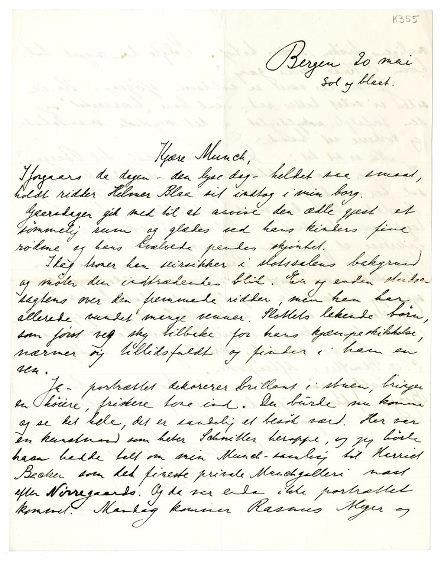 K355
Bergen 20 mai
Sol og blaat.
Kjære Munch,
Iforgaars da dagen – den lyse dag – heldet saa smaat,
holdt ridder Helmer Blaa sit indtog i min borg.
Gaarsdagen gik med til at anvise den ædle gjest et
sømmelig rum og glædes ved hans kinders fine
rødme og hans
Idag troner han seirsikker i slotssalens bakgrund
og møter den indtrædendes blik. Er og enden
over den fremmede ridder, men han har
allerede vundet mange venner. Slottets lekende børn,
som først veg sky tilbake for hans kjæmpeskikkelse,
nærmer og tillidsfuldt og finder i ham en
ven.
Ja – portrættet dekorerer brillant i stuen, bringer
en høiere, friere tone ind. Du burde nu komme
og se det hele, det er sandelig et besøk værd. Her var
en kunstmand som heter Schnitler heroppe, og jeg
hadde talt om min Munch-samling til Harriet
Backer som det fineste private Munchgalleri næst
efter Nørregaards. Og da var enda ikke portrættet
kommet. Mandag kommer Rasmus Meyer og